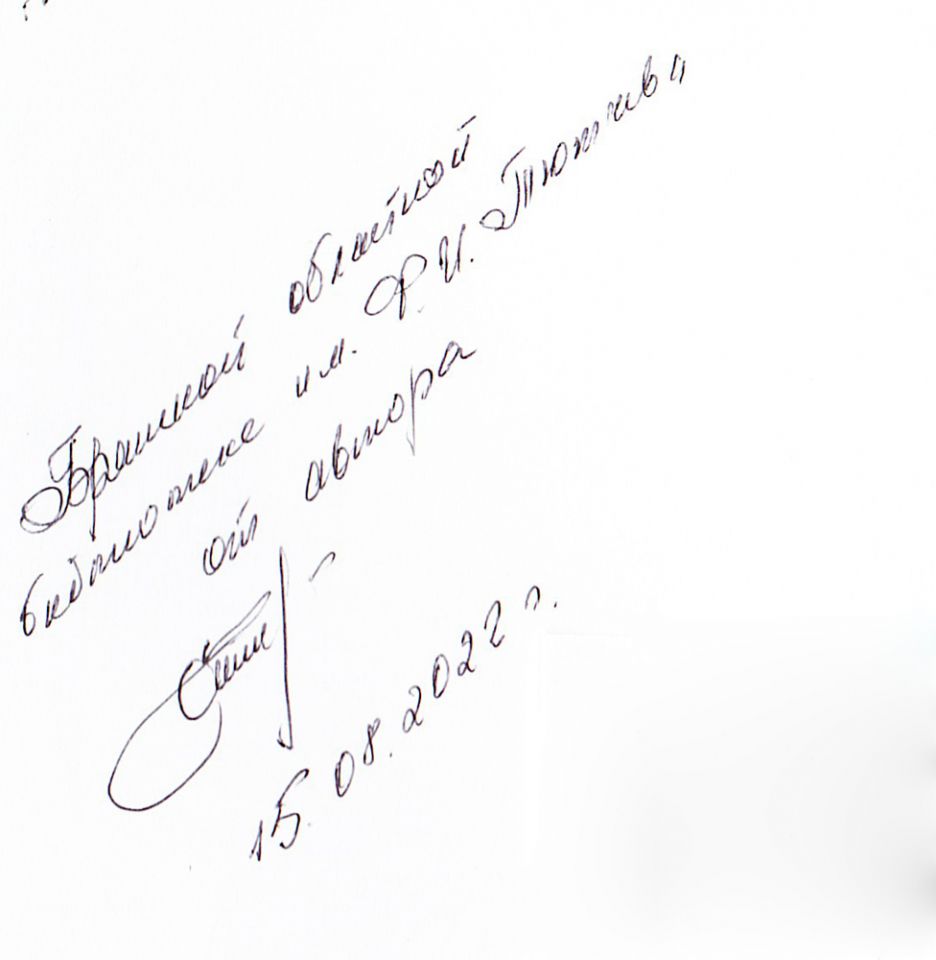 Брянской областной
библиотеке им. Ф. И. Тютчева
от автора
15.08.2022 г.